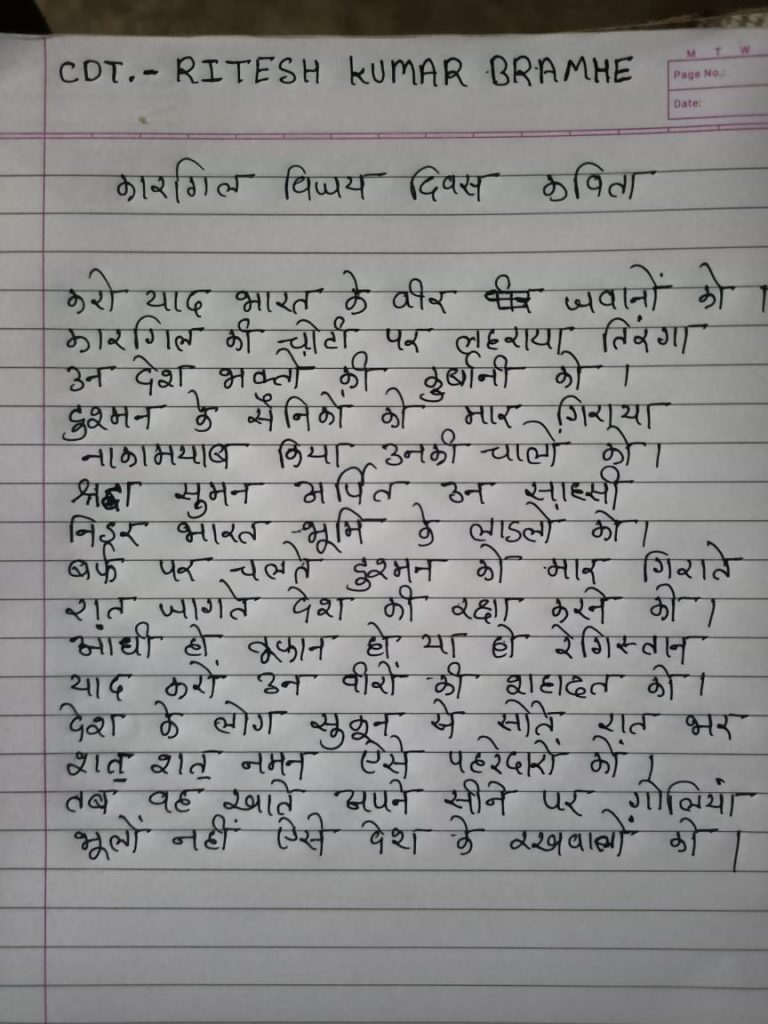 M T W
Page No.:
Date:
CDT.- RITESH KUMAR BRAMHE
कारगिल विजय दिवस कविता
करो याद भारत के वीर जवानों को ।
कारगिल की चोटी पर लहराया तिरंगा
उन देश भक्तों की कुर्बानी को ।
दुश्मन के सैनिकों को मार गिराया
नाकामयाब किया उनकी चालों को ।
श्रद्धा सुमन अर्पित उन साहसी
निडर भारत भूमि के लाडलों को ।
बर्फ पर चलते दुश्मन को मार गिराते
रात जागते देश की रक्षा करने को ।
आंधी हो तूफान हो या हो रेगिस्तान
याद करों उन वीरों की शहादत को ।
देश के लोग सुकून से सोते रात भर
शत् शत् नमन ऐसे पहरेदारों कों ।
तब वह खाते अपने सीने पर गोलियां
भूलों नहीं ऐसे देश के रखवालों को ।